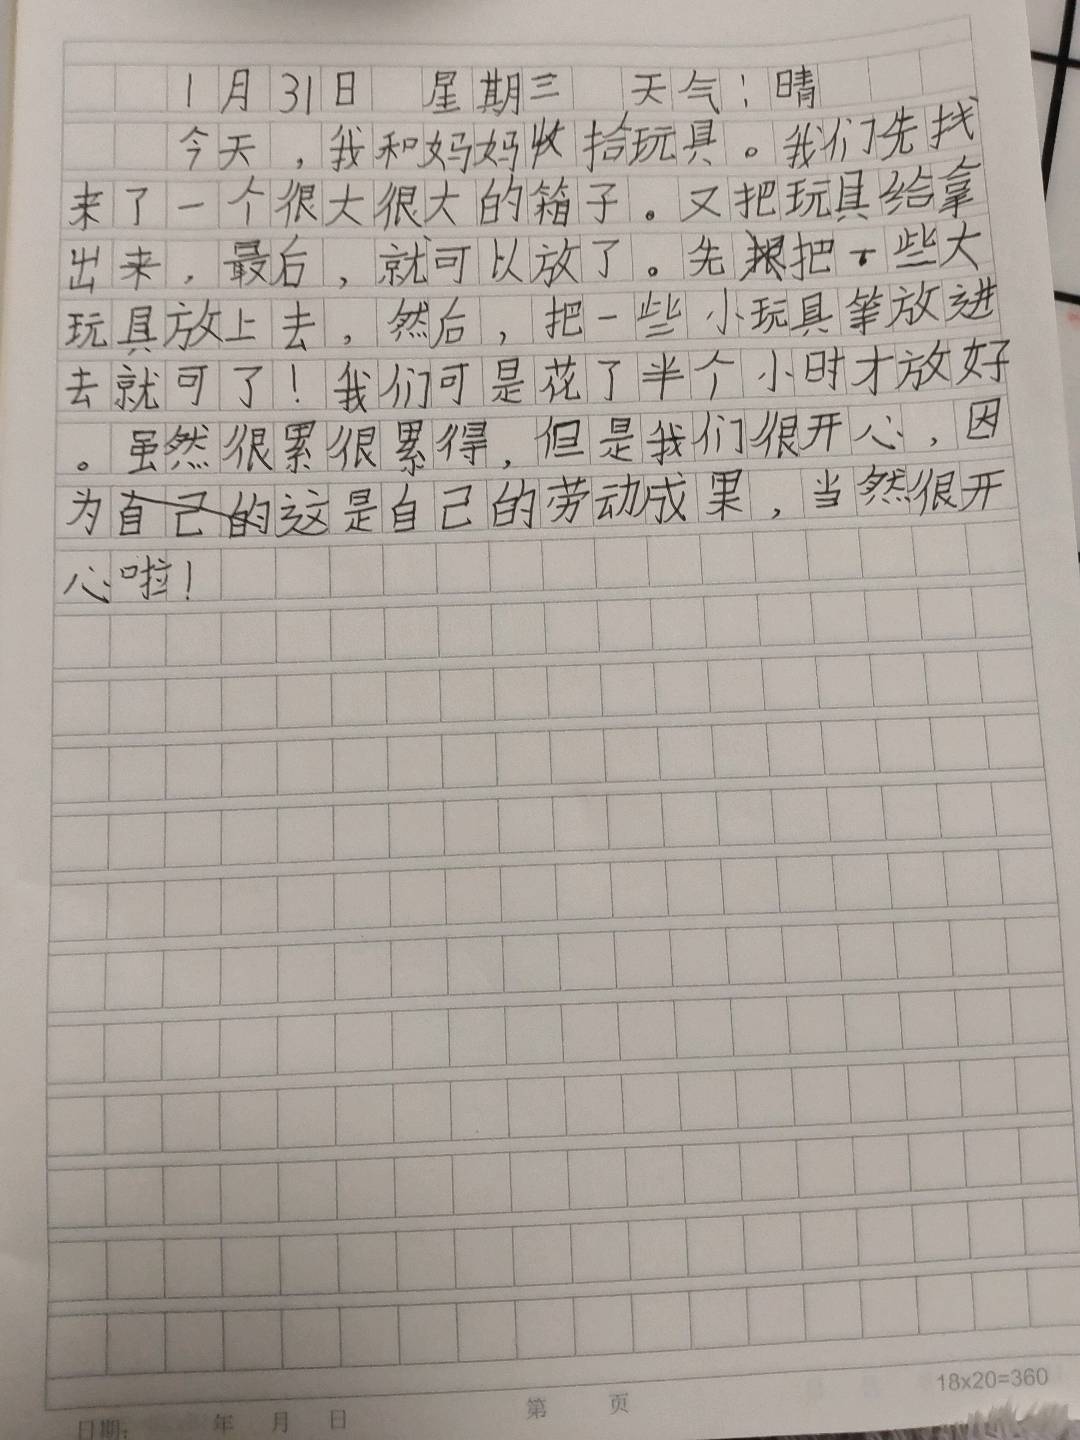 1月31日 星期三 天气：晴
今天，我和妈妈收拾玩具。我们先找
来了一个很大很大的箱子。又把玩具给拿
出来，最后，就可以放了。先把一些大
玩具放上去，然后，把一些小玩具笔放进
去就可了！我们可是花了半个小时才放好
。虽然很累很累得，但是我们很开心，因
为自己的这是自己的劳动成果，当然很开
心啦！
18x20=360
日期： 年 月 日
第 页